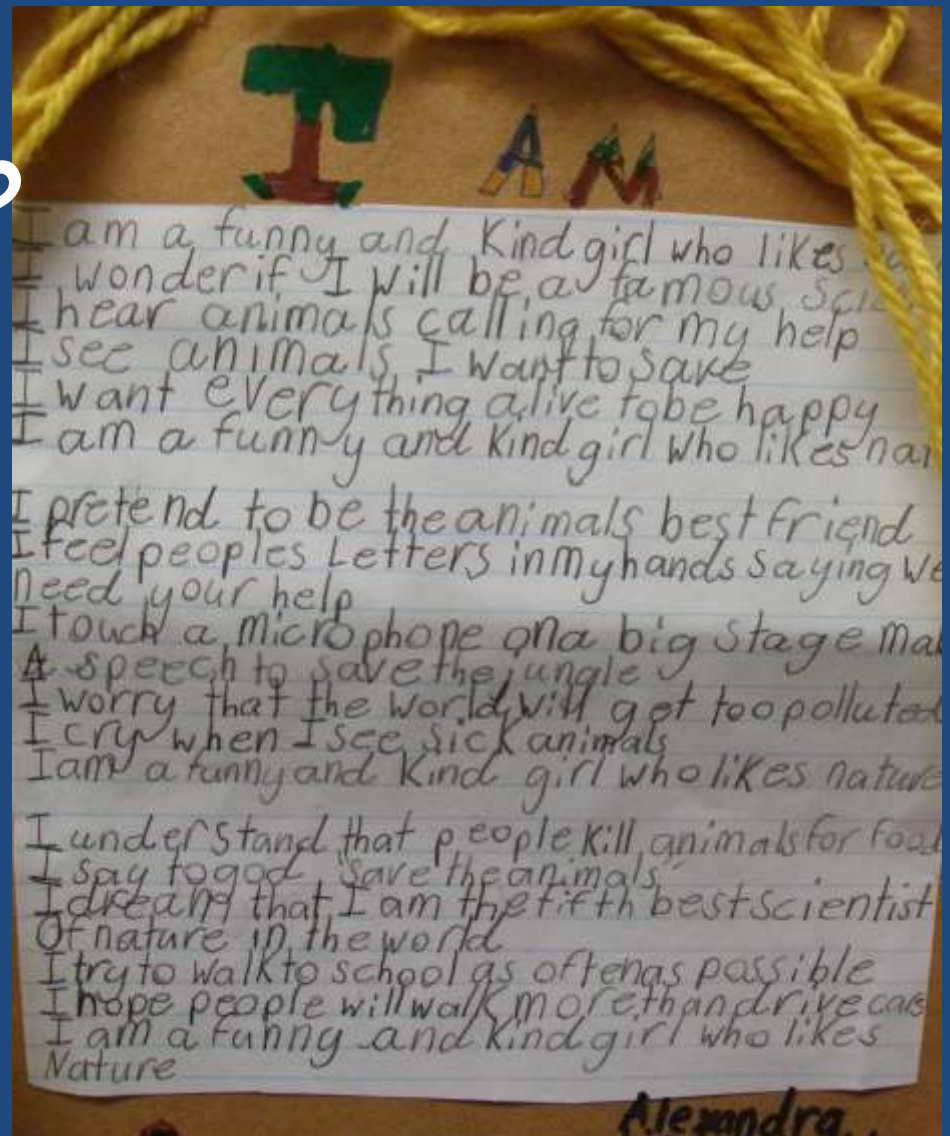 I AM
I am a funny and Kind girl who likes
I wonder if I will be a famous
I hear animals calling for my help
I see animals I want to save
I want everything alive to be happy
I am a funny and kind girl who likes
I pretend to be the animals best friend
I feel peoples Letters in my hands saying we
need your help
I touch a microphone on a big stage
A speech to save the jungle
I worry that the world will get too polluted
I cry when I see sick animals
I am a funny and Kind girl who likes nature
I understand that people kill animals for food
I say to god "save the animals"
I dream that I am the fifth best scientist
Of nature in the world
I try to walk to school as often as possible
I hope people will walk more than drive cars
I am a funny and kind girl who likes
Nature
Alexandra